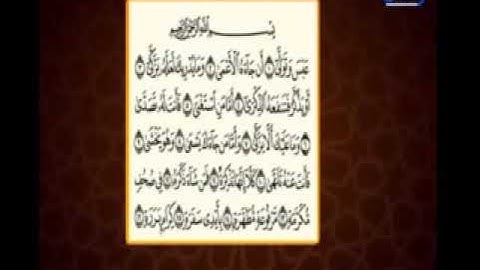 بسم الله الرحمن الرحيم
عبس وتولى ١ أن جاءه الأعمى ٢ وما يدريك لعله يزكى ٣
أو يذكر فتنفعه الذكرى ٤ أما من استغنى ٥ فأنت له تصدى
٦ وما عليك ألا يزكى ٧ وأما من جاءك يسعى ٨ وهو يخشى ٩
فأنت عنه تلهى ١٠ كلا إنها تذكرة ١١ فمن شاء ذكره ١٢ في صحف
مكرمة ١٣ مرفوعة مطهرة ١٤ بأيدي سفرة ١٥ كرام بررة ١٦